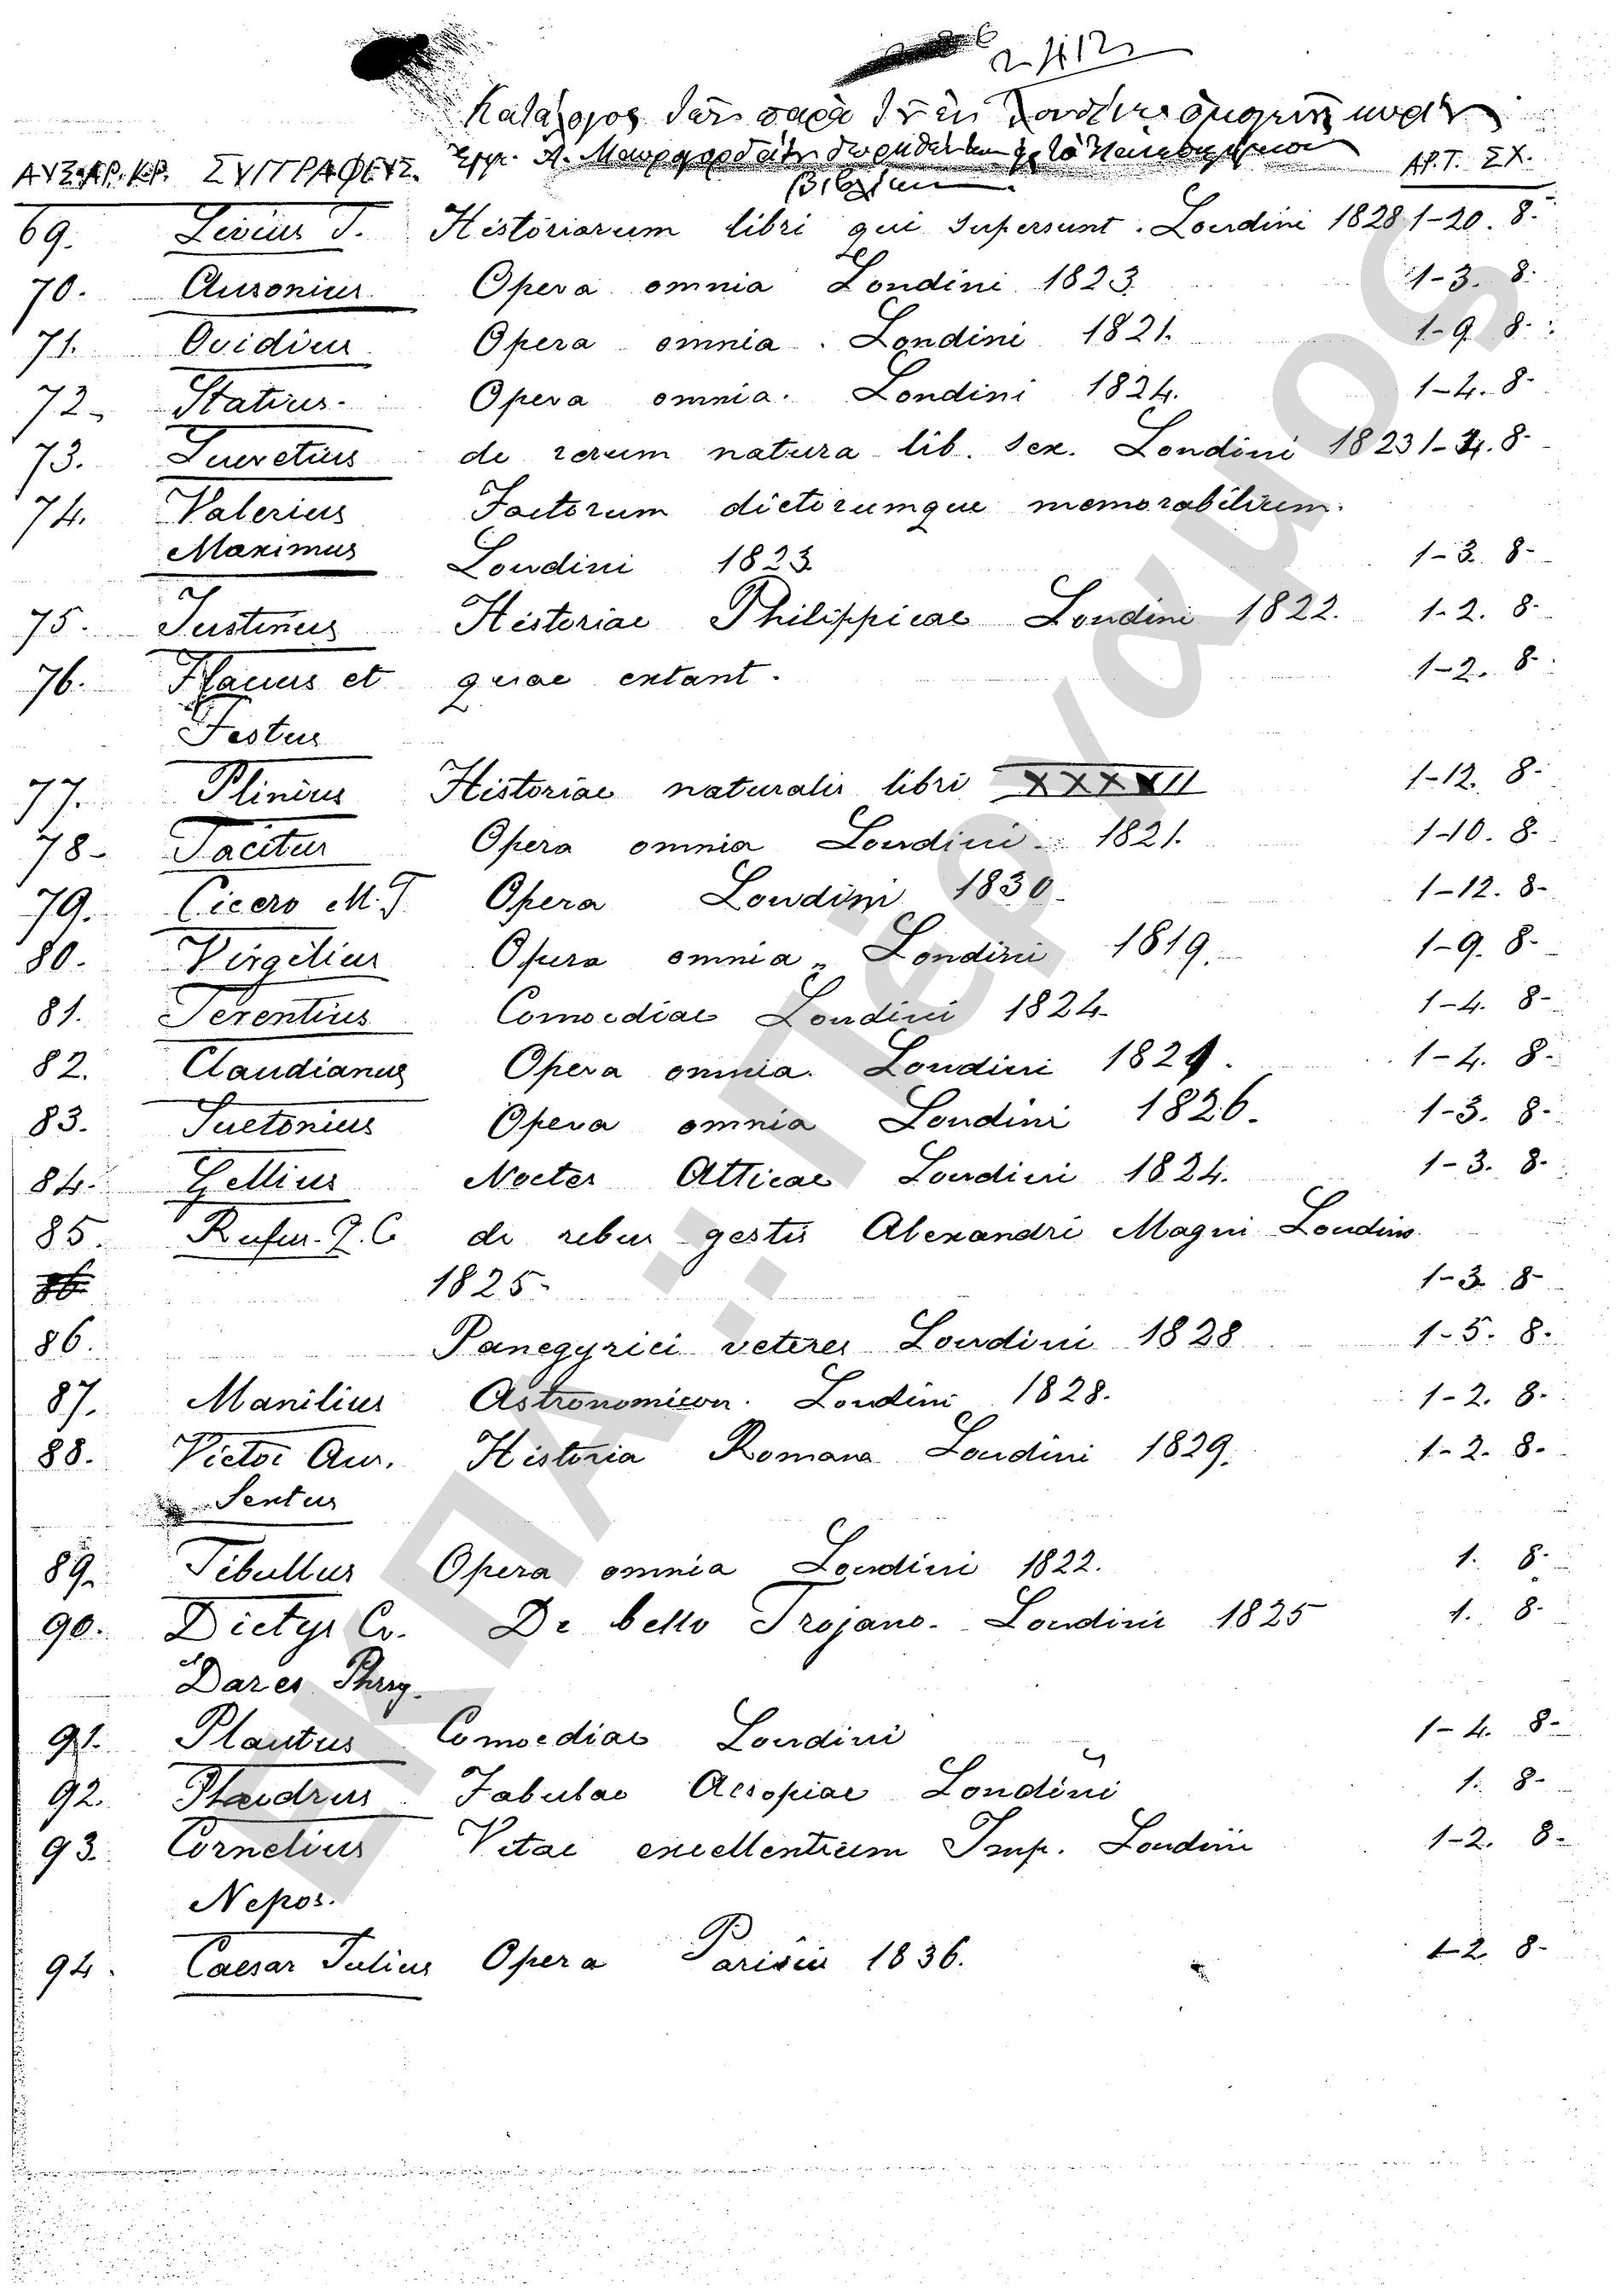 Κατάλογος τῶν παρὰ τῶν ἐν Λονδίνῳ ὁμογενῶν κυρίων
ΑΥΞ.ΑΡ.ΚΡ. ΣΥΓΓΡΑΦΕΥΣ. Α. Μαυρογορδάτη δωρηθέντων
βιβλίων ΑΡ.Τ. ΣΧ.
69. Livius T. Historiarum libri qui supersunt. Londini 1828 1-20. 8.
70. Ausonius Opera omnia Londini 1823. 1-3. 8.
71. Ovidius Opera omnia. Londini 1821. 1-9. 8.
72. Statius. Opera omnia. Londini 1824. 1-4. 8.
73. Lucretius de rerum natura lib. sex. Londini 1823 1-4. 8.
74. Valerius Factorum dictorumque memorabilium.
Maximus Londini 1823 1-3. 8.
75. Justinus Historiae Philippicae Londini 1822. 1-2. 8.
76. Flacus et quae extant. 1-2. 8.
Festus
77. Plinius Historiae naturalis libri XXXVII 1-12. 8.
78. Tacitus Opera omnia Londini 1821. 1-10. 8.
79. Cicero M. T Opera Londini 1830. 1-12. 8.
80. Virgilius Opera omnia Londini 1819. 1-9. 8.
81. Terentius Comoediae Londini 1824 1-4. 8.
82. Claudianus Opera omnia. Londini 1821. 1-4. 8.
83. Suetonius Opera omnia Londini 1826. 1-3. 8.
84. Gellius Noctes Atticae Londini 1824. 1-3. 8.
85. Rufus. Q. C de rebus gestis Alexandri Magni Londini
1825. 1-3 8.
86. Panegyrici veteres Londini 1828 1-5. 8.
87. Manilius Astronomicon. Londini 1828. 1-2. 8.
88. Victor Aur. Historia Romana Londini 1829. 1-2. 8.
Sextus
89. Tibullus Opera omnia Londini 1822. 1. 8.
90. Dictys Cr. De bello Trojano. Londini 1825 1. 8.
et Dares Phryg.
91. Plautus Comoediae Londini 1-4. 8.
92. Phaedrus Fabulae Aesopiae Londini 1. 8.
93. Cornelius Vitae excellentium Imp. Londini 1-2. 8.
Nepos.
94. Caesar Julius Opera Parisiis 1836. 1-2 8.